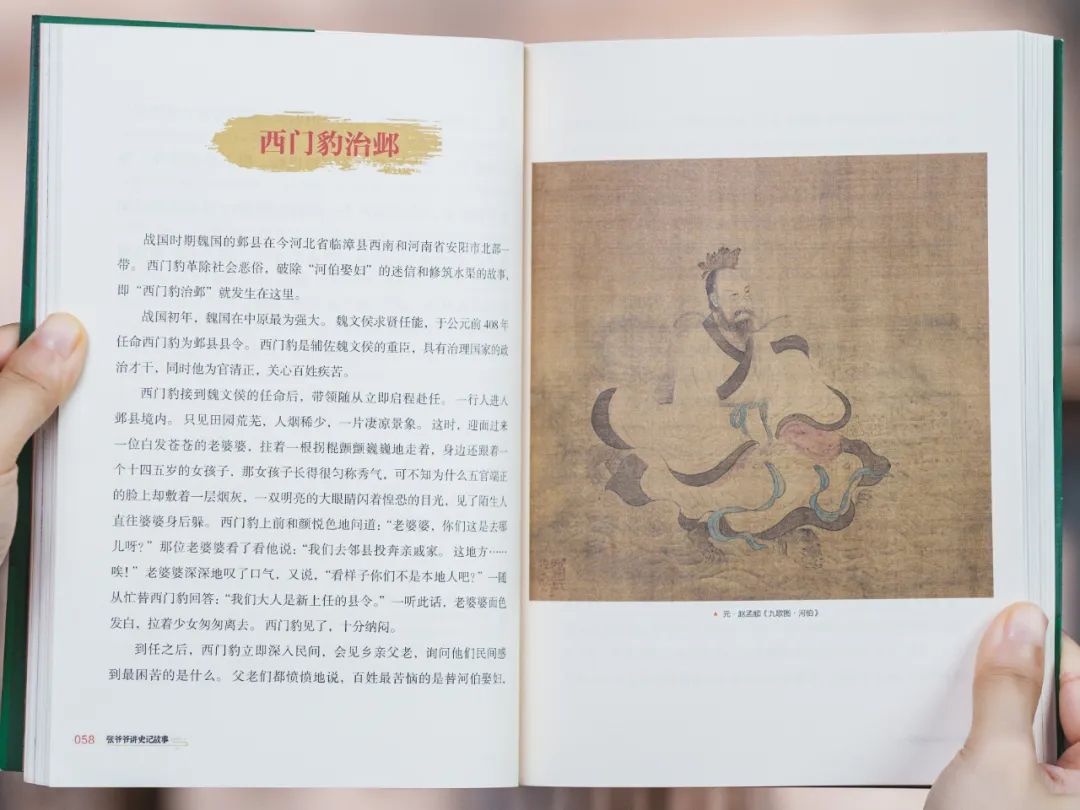 西门豹治邺
战国时期魏国的邺县在今河北省临漳县西南和河南省安阳市北部一
带。西门豹革除社会恶俗，破除“河伯娶妇”的迷信和修筑水渠的故事，
即“西门豹治邺”就发生在这里。
战国初年，魏国在中原最为强大。魏文侯求贤任能，于公元前408年
任命西门豹为邺县县令。西门豹是辅佐魏文侯的重臣，具有治理国家的政
治才干，同时他为官清正，关心百姓疾苦。
西门豹接到魏文侯的任命后，带领随从立即启程赴任。一行人进入
邺县境内。只见田园荒芜，人烟稀少，一片凄凉景象。这时，迎面过来
一位白发苍苍的老婆婆，拄着一根拐棍颤颤巍巍地走着，身边还跟着一
个十四五岁的女孩子，那女孩子长得很匀称秀气，可不知为什么五官端正
的脸上却敷着一层烟灰，一双明亮的大眼睛闪着惶恐的目光，见了陌生人
直往婆婆身后躲。西门豹上前和颜悦色地问道：“老婆婆，你们这是去哪
儿呀？”那位老婆婆看了看他说：“我们去邻县投奔亲戚家。这地方……
唉！”老婆婆深深地叹了口气，又说，“看样子你们不是本地人吧？”一随
从忙替西门豹回答：“我们大人是新上任的县令。”一听此话，老婆婆面色
发白，拉着少女匆匆离去。西门豹见了，十分纳闷。
到任之后，西门豹立即深入民间，会见乡亲父老，询问他们民间感
到最困苦的是什么。父老们都愤愤地说，百姓最苦恼的是替河伯娶妇，
058 张爷爷讲史记故事
▲ 元·赵孟頫《九歌图·河伯》